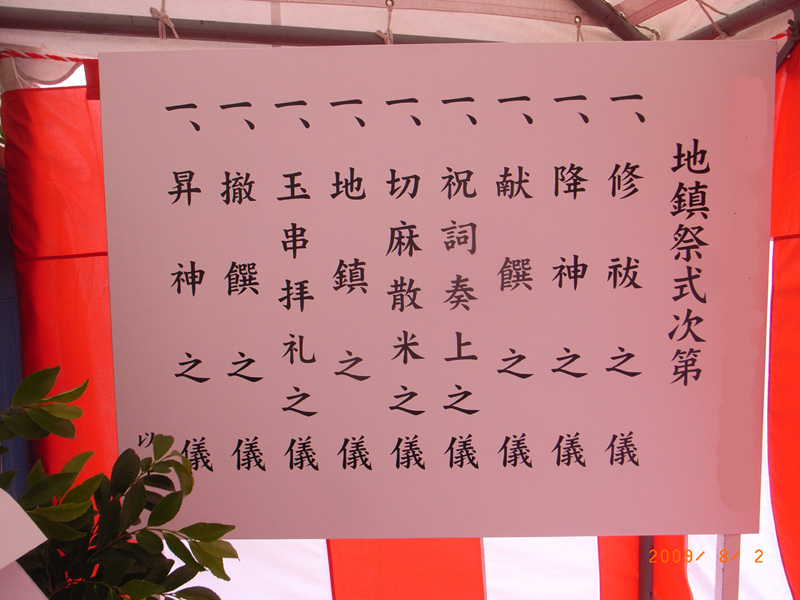 地鎮祭式次第
一、修祓之儀
一、降神之儀
一、献饌之儀
一、祝詞奏上之儀
一、切麻散米之儀
一、地鎮之儀
一、玉串拝礼之儀
一、撤饌之儀
一、昇神之儀
以
2009/ 8/ 2